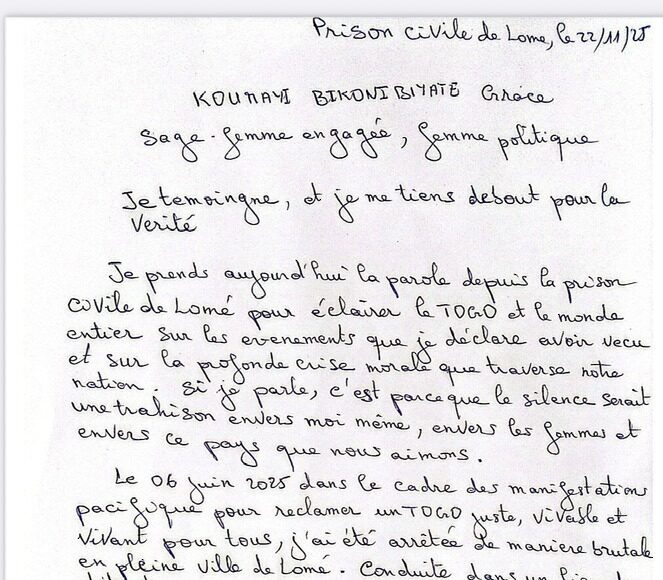 Prison civile de Lome, le 22/11/25
KOUMAYI BIKONIBIYATE Grâce
Sage-femme engagée, femme politique
Je temoingne, et je me tiens debout pour la
Verité
Je prends aujourd'hui la parole depuis la prison
civile de Lomé pour éclairer le TOGO et le monde
entier sur les evenements que je déclare avoir vecu
et sur la profonde crise morale que traverse notre
nation. Si je parle, c'est parce que le silence serait
une trahison envers moi même, envers les femmes et
envers ce pays que nous aimons.
Le 06 juin 2025 dans le cadre des manifestations
pacifique pour reclamer un TOGO juste, vivable et
vivant pour tous, j'ai été arrêtée de maniere brutale
en pleine ville de Lomé. Conduite dans un